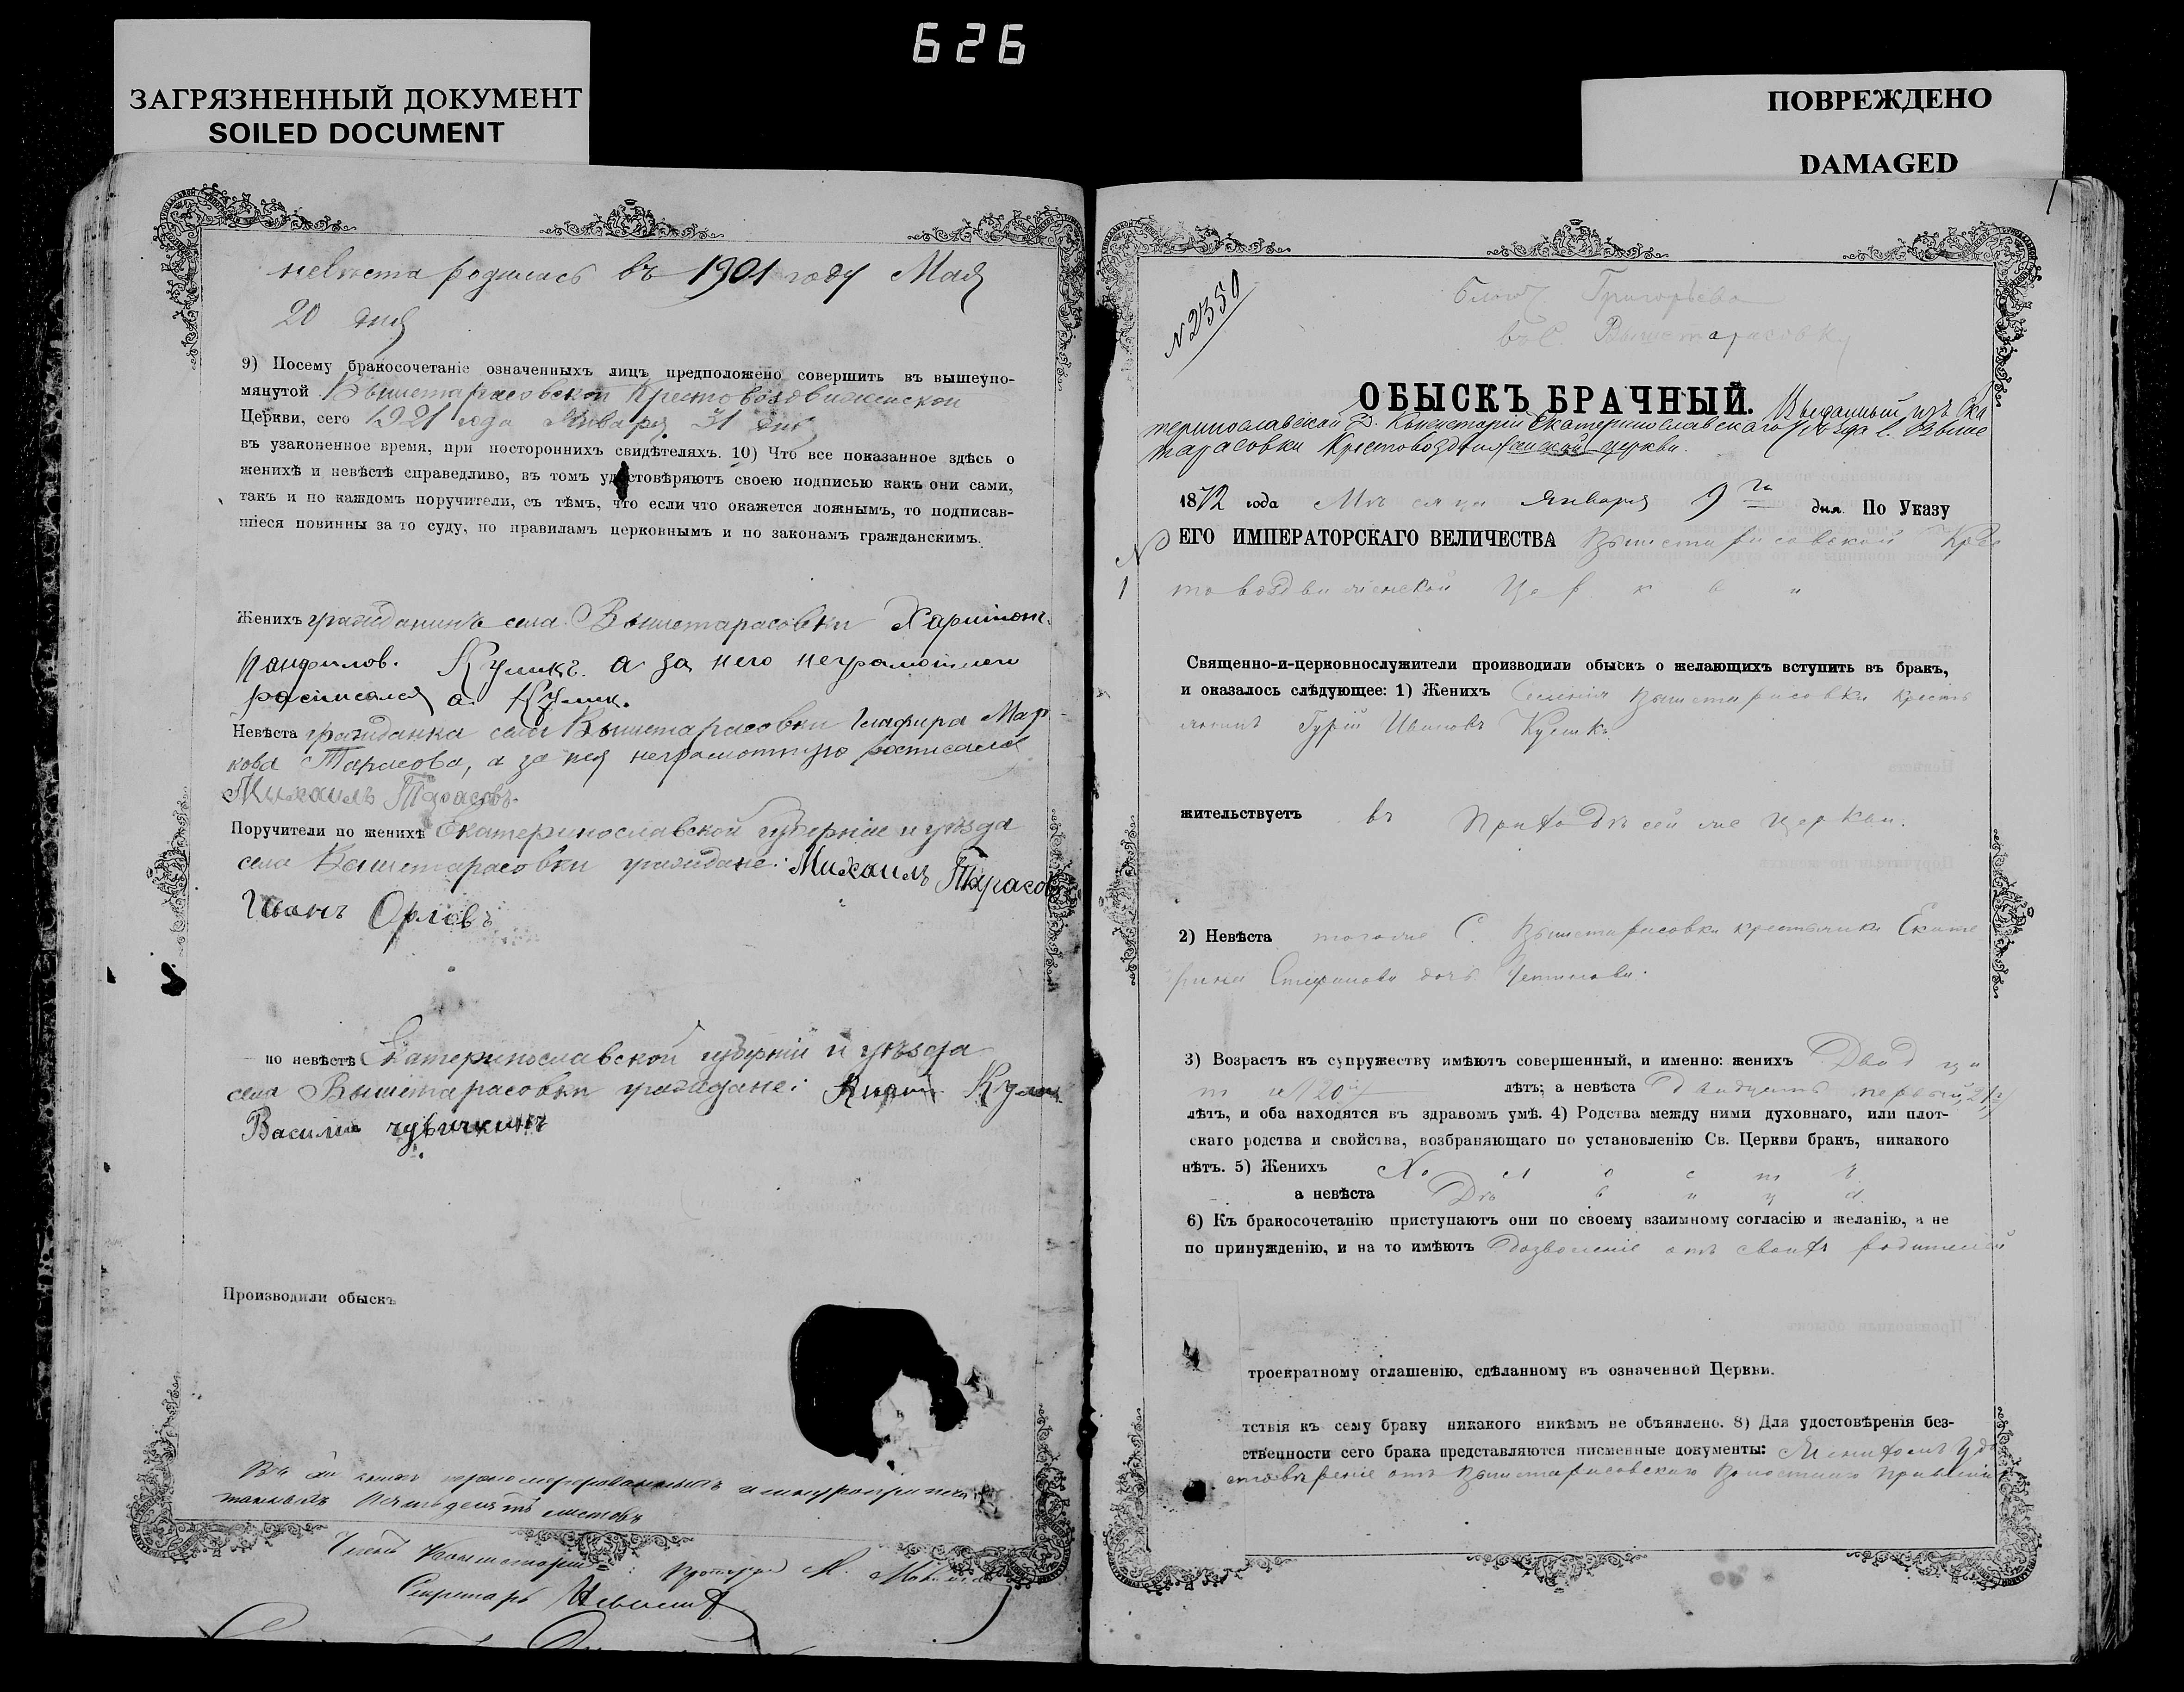 626
ЗАГРЯЗНЕННЫЙ ДОКУМЕНТ
SOILED DOCUMENT
ПОВРЕЖДЕНО
DAMAGED
невѣста родилась въ 1901 году Мая
20 дня
9) Посему бракосочетаніе означенныхъ лицъ предположено совершить въ вышеупо-
мянутой Вышетарасовской Крестовоздвиженской
Церкви, сего 1921 года Января 31 дня
въ узаконенное время, при постороннихъ свидѣтеляхъ. 10) Что все показанное здѣсь о
женихѣ и невѣстѣ справедливо, въ томъ удостовѣряютъ своею подписью какъ они сами,
такъ и по каждомъ поручители, съ тѣмъ, что если что окажется ложнымъ, то подписав-
шіеся повинны за то суду, по правиламъ церковнымъ и по законамъ гражданскимъ.
Женихъ гражданинъ села Вышетарасовки Харитон.
Панфилов. Куликъ. а за него неграмотнаго
росписался а. Кулик.
Невѣста гражданка села Вышетарасовки Глафира Мар-
кова Тарасова, а за нея неграмотную росписался
Михаилъ Тарасовъ.
Поручители по женихѣ Екатеринославской губерніи и уѣзда
села Вышетарасовки граждане: Михаилъ Тарасов
Иванъ Орловъ
по невѣстѣ Екатеринославской губерніи и уѣзда
села Вышетарасовки граждане: Кулик
Василий
Производили обыскъ
Въ сей книгѣ
пятьдесятъ листовъ
Членъ Консисторіи: М.
Секретарь
N 2350
Григорьева
въ С. Вышетарасовку
ОБЫСКЪ БРАЧНЫЙ. Выданный изъ Ека
теринославской Д. Консисторіи Екатеринославскаго уѣзда с. Выше
тарасовки Крестовоздвиженской церкви.
1872 года Мѣсяца Января 9го дня. По Указу
ЕГО ИМПЕРАТОРСКАГО ВЕЛИЧЕСТВА Вышетарасовской Крес
N 1 товоздвиженской Церкви
Священно-и-церковнослужители производили обыскъ о желающихъ вступить въ бракъ,
и оказалось слѣдующее: 1) Женихъ Селенія Вышетарасовки кресть
янинъ Гурій Ивановъ Куликъ
жительствуетъ въ Приходѣ сей же Церкви.
2) Невѣста тогоже С. Вышетарасовки крестьянка Екате
рина Стефанова дочь
3) Возрастъ къ супружеству имѣютъ совершенный, и именно: женихъ Двадца
ть /20й/ лѣтъ; а невѣста Двадцать первый, 21й/
лѣтъ, и оба находятся въ здравомъ умѣ. 4) Родства между ними духовнаго, или плот-
скаго родства и свойства, возбраняющаго по установленію Св. Церкви бракъ, никакого
нѣтъ. 5) Женихъ Холостъ
а невѣста Дѣвица.
6) Къ бракосочетанію приступаютъ они по своему взаимному согласію и желанію, а не
по принужденію, и на то имѣютъ Дозволеніе отъ своихъ родителей
троекратному оглашенію, сдѣланному въ означенной Церкви.
тствія къ сему браку никакого никѣмъ не объявлено. 8) Для удостовѣренія без-
ственности сего брака представляются писменные документы: Жениховъ Удо
стовѣреніе отъ Вышетарасовскаго Волостнаго Правленія